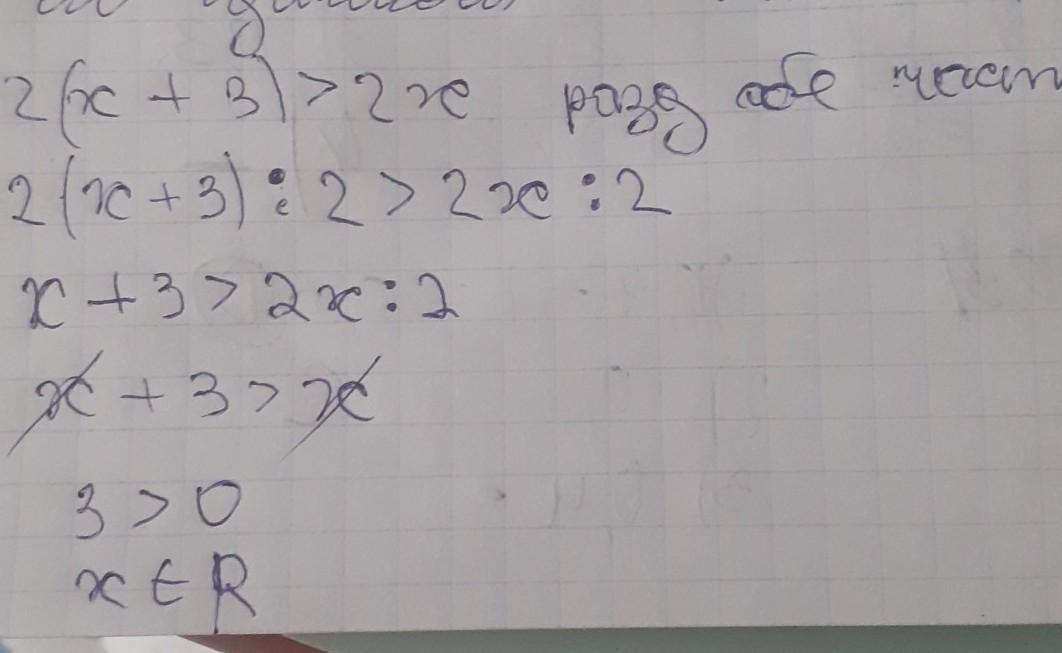 2(x + 3) > 2x разд обе част
2(x + 3) : 2 > 2x : 2
x + 3 > 2x : 2
x + 3 > x
3 > 0
x ∈ R